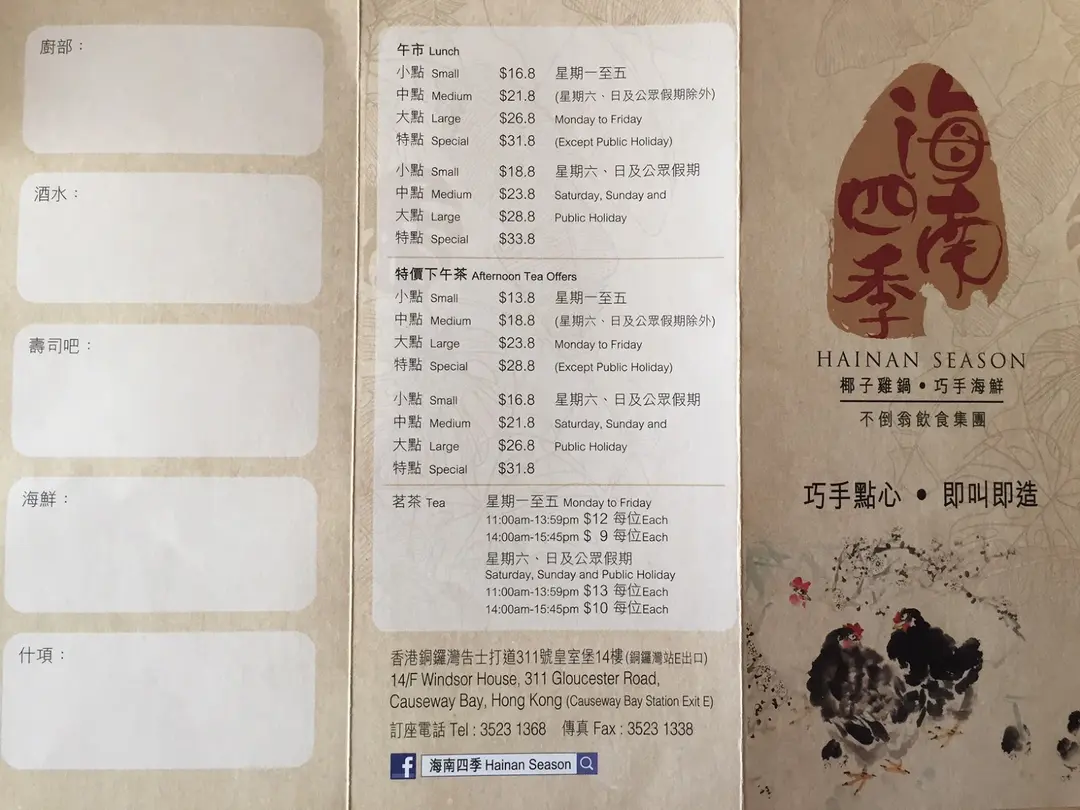 廚部：
酒水：
壽司吧：
海鮮：
什項：
午市 Lunch
小點 Small $16.8 星期一至五
中點 Medium $21.8 (星期六、日及公眾假期除外)
大點 Large $26.8 Monday to Friday
特點 Special $31.8 (Except Public Holiday)
小點 Small $18.8 星期六、日及公眾假期
中點 Medium $23.8 Saturday, Sunday and
大點 Large $28.8 Public Holiday
特點 Special $33.8
特價下午茶 Afternoon Tea Offers
小點 Small $13.8 星期一至五
中點 Medium $18.8 (星期六、日及公眾假期除外)
大點 Large $23.8 Monday to Friday
特點 Special $28.8 (Except Public Holiday)
小點 Small $16.8 星期六、日及公眾假期
中點 Medium $21.8 Saturday, Sunday and
大點 Large $26.8 Public Holiday
特點 Special $31.8
茗茶 Tea 星期一至五 Monday to Friday
11:00am-13:59pm $12 每位Each
14:00am-15:45pm $ 9 每位Each
星期六、日及公眾假期
Saturday, Sunday and Public Holiday
11:00am-13:59pm $13 每位Each
14:00am-15:45pm $10 每位Each
香港銅鑼灣告士打道311號皇室堡14樓(銅鑼灣站E出口)
14/F Windsor House, 311 Gloucester Road,
Causeway Bay, Hong Kong (Causeway Bay Station Exit E)
訂座電話 Tel : 3523 1368 傳真 Fax : 3523 1338
f 海南四季 Hainan Season
海南
四季
HAINAN SEASON
椰子雞鍋•巧手海鮮
不倒翁飲食集團
巧手點心 • 即叫即造